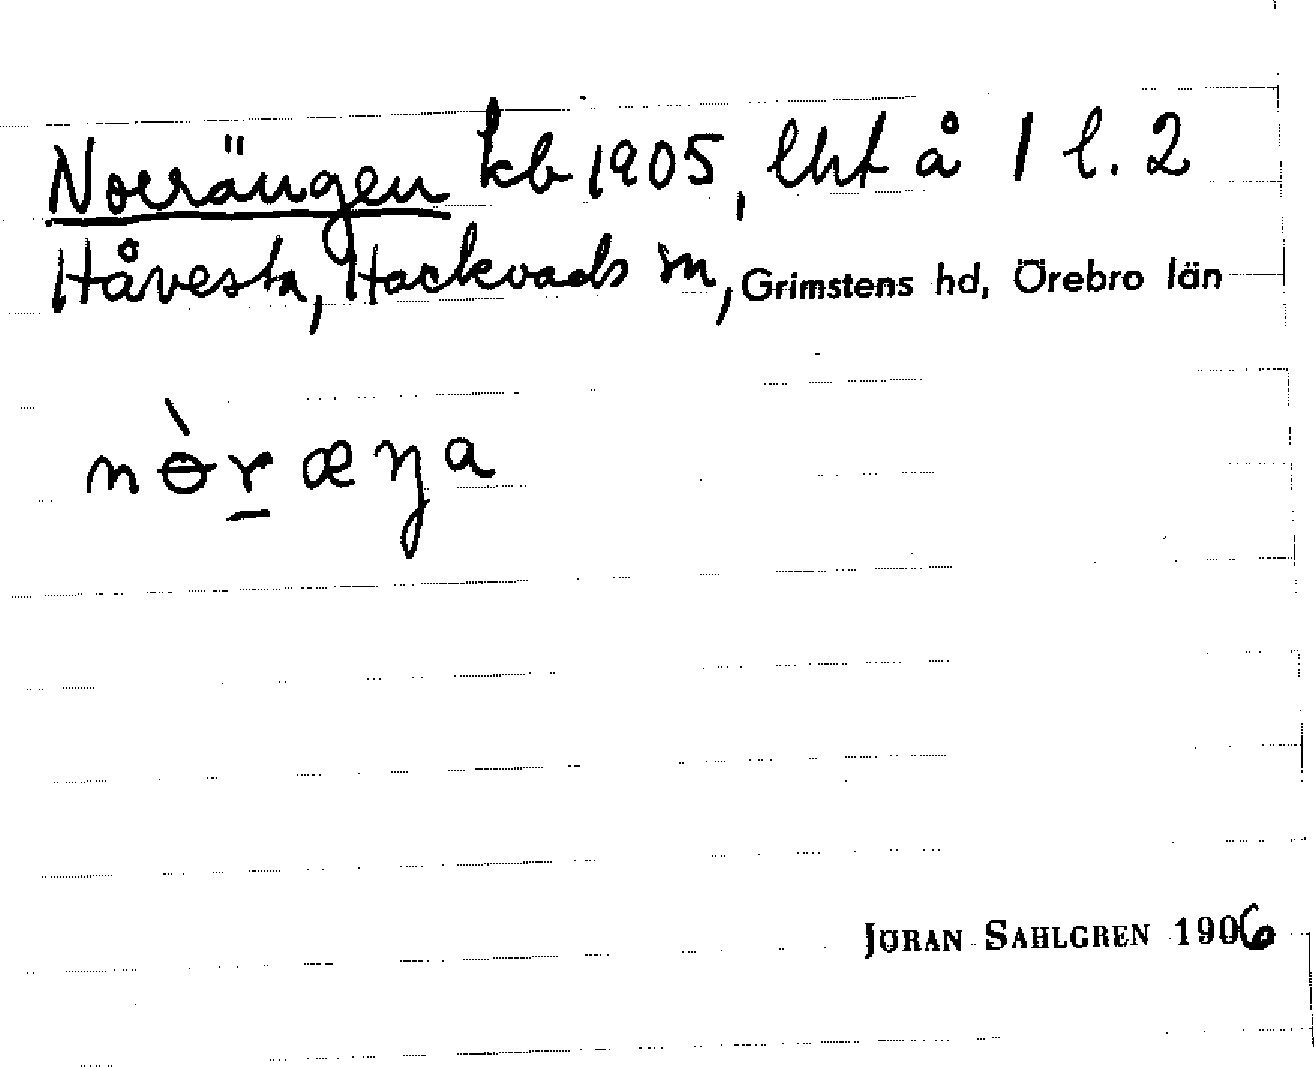 Norrängen kb 1905, lht å 1 l. 2
Håvesta, Hackvads sn, Grimstens hd, Örebro län
nɵ̀r̲æŋa
JÖRAN SAHLGREN 1906